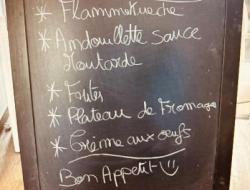 * Flammekueche
* Andouillette sauce
Moutarde
* Frites
* Plateau de Fromage
* Crème aux oeufs
Bon Appetit